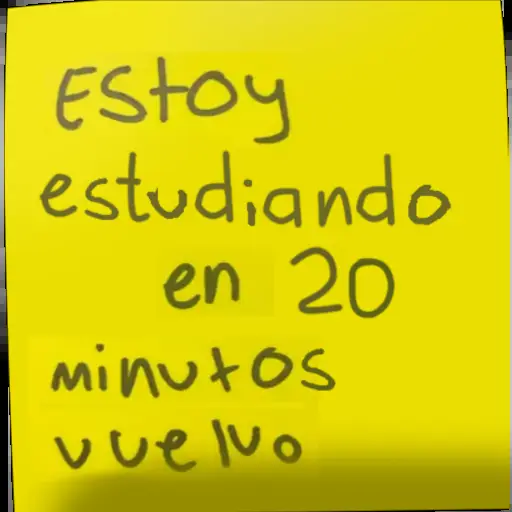 Estoy
estudiando
en 20
minutos
vuelvo